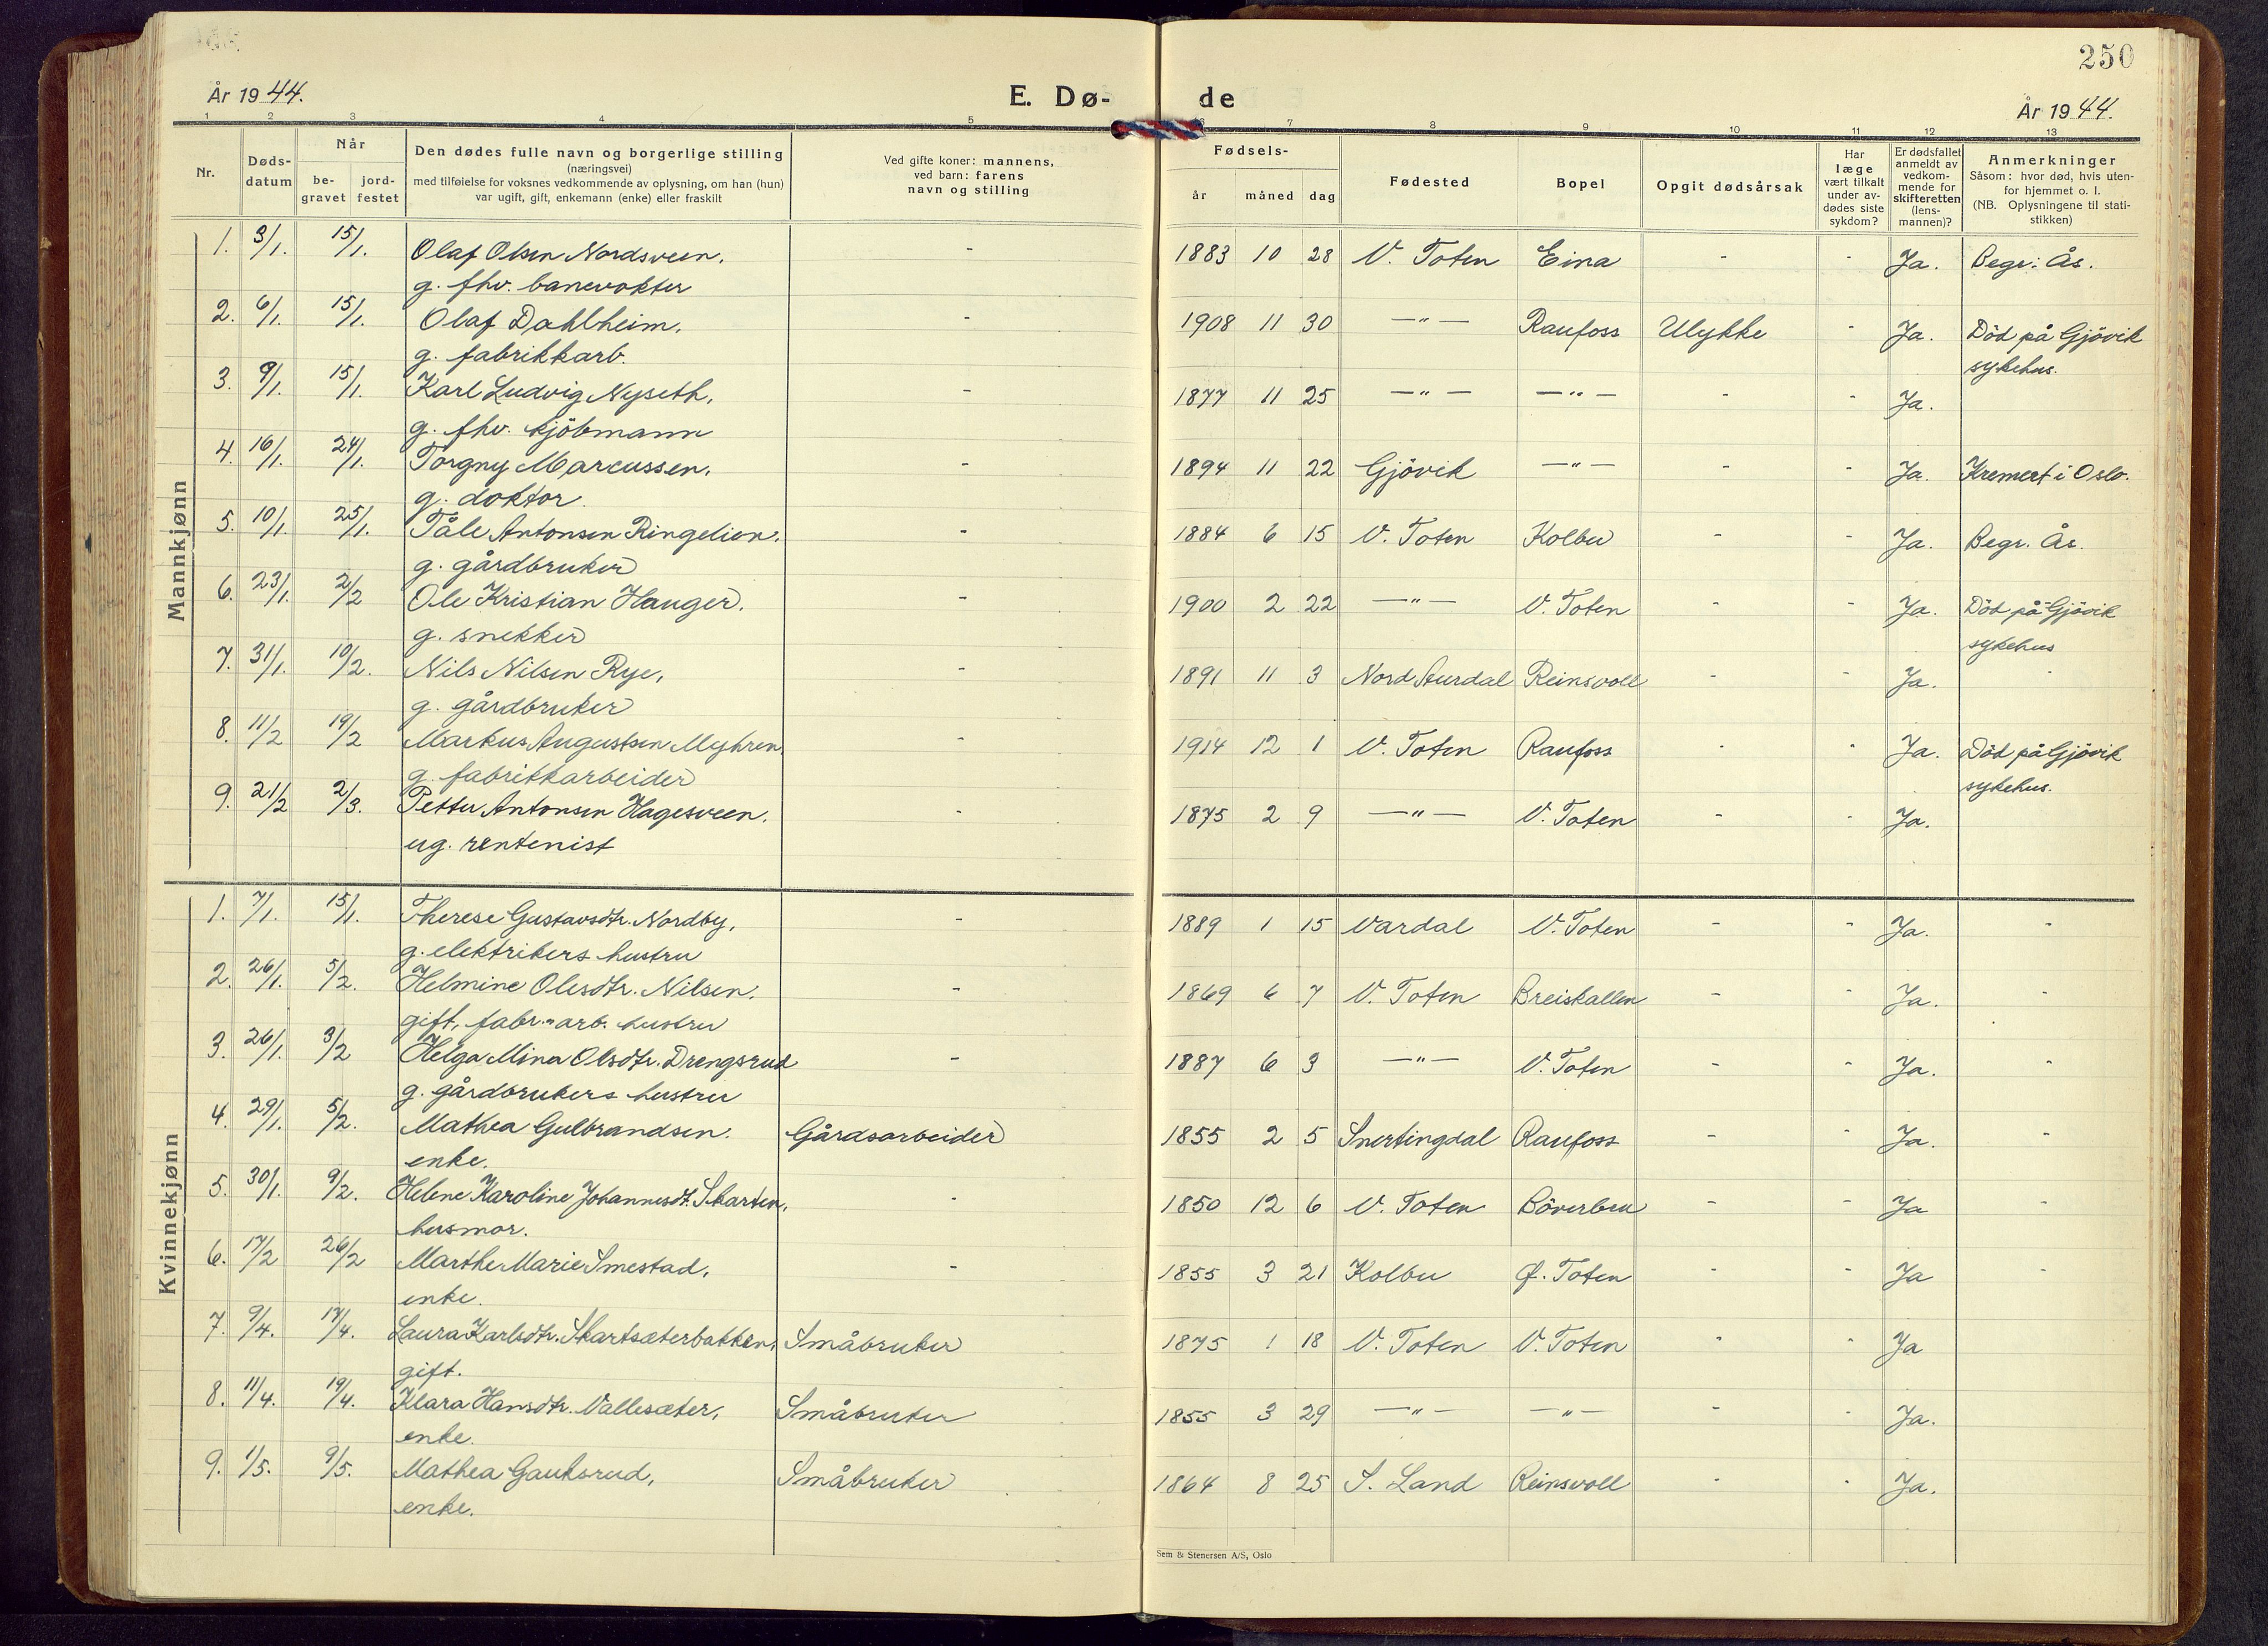 250
År 1944.
E. Dø-
de
År 1944.
1 2 3 4 5 6 7 8 9 10 11 12 13
Nr.
Døds-
datum
Når
be-
gravet
jord-
festet
Den dødes fulle navn og borgerlige stilling
(næringsvei)
med tilføielse for voksnes vedkommende av oplysning, om han (hun)
var ugift, gift, enkemann (enke) eller fraskilt
Ved gifte koner: mannens,
ved barn: farens
navn og stilling
Fødsels-
år måned dag
Fødested
Bopel
Opgit dødsårsak
Har
læge
vært tilkalt
under av-
dødes siste
sykdom?
Er dødsfallet
anmeldt av
vedkom-
mende for
skifteretten
(lens-
mannen)?
Anmerkninger
Såsom: hvor død, hvis uten-
for hjemmet o. l.
(NB. Oplysningene til stati-
stikken)
Mannkjønn
1. 3/1. 15/1. Olaf Olsen Nordsveen, - 1883 10 28 V. Toten Eina - - Ja. Begr: Ås.
g. fhv. banevokter
2. 6/1. 15/1. Olaf Dahlheim, - 1908 11 30 —"— Raufoss Ulykke - Ja. Död på Gjövik
g. fabrikkarb. sykehus.
3. 9/1. 15/1. Karl Ludvig Nyseth, - 1877 11 25 —"— —"— - - Ja.
g. fhv. kjöbmann
4. 16/1. 24/1. Torgny Marcussen, - 1894 11 22 Gjövik —"— - - Ja. Kremert i Oslo.
g. doktor.
5. 10/1. 25/1. Påle Antonsen Ringelien. - 1884 6 15 V. Toten Kolbu - - Ja. Begr. Ås.
g. gårdbruker
6. 23/1. 2/2 Ole Kristian Hauger. - 1900 2 22 —"— V. Toten - - Ja. Död på Gjövik
g. snekker sykehus
7. 31/1. 10/2. Nils Nilsen Rye, - 1891 11 3 Nord Aurdal Reinsvoll - - Ja. -
g. gårdbruker
8. 11/2 19/2 Markus Augustsen Myhren - 1914 12 1 V. Toten Raufoss - - Ja. Död på Gjövik
g. fabrikkarbeider sykehus.
9. 21/2 2/3. Petter Antonsen Hagesveen. - 1875 2 9 —"— V. Toten - - Ja.
ug. rentenist
Kvinnekjønn
1. 7/1. 15/1. Therese Gustavsdtr. Nordby, - 1889 1 15 Vardal V. Toten - - Ja. -
g. elektrikers hustru
2. 26/1. 5/2. Helmine Olesdtr. Nilsen. - 1869 6 7 V. Toten Breiskallen - - Ja. -
gift, fabr. arb. hustru
3. 26/1. 3/2 Helga Mina Olsdtr. Drengsrud - 1887 6 3 —"— V. Toten - - Ja. -
g. gårdbrukers hustru
4. 29/1. 5/2. Mathea Gulbrandsen. Gårdsarbeider 1855 2 5 Snertingdal Raufoss - - Ja. -
enke.
5. 30/1. 9/2. Helene Karoline Johannesdt. Skarten, - 1850 12 6 V. Toten Böverbru - - Ja -
husmor.
6. 17/2 26/2 Marthe Marie Smestad, - 1855 3 21 Kolbu Ø. Toten - - Ja -
enke.
7. 9/4. 17/4. Laura Karlsdtr. Skartsæterbakken, Småbruker 1875 1 18 V. Toten V. Toten - - Ja
gift.
8. 11/4. 19/4. Klara Hansdtr. Vallesæter, Småbruker 1855 3 29 —"— —"— - - Ja.
enke.
9. 1/5. 9/5. Mathea Gauksrud, Småbruker 1864 8 25 S. Land Reinsvoll - - Ja.
enke.
Sem & Stenersen A/S, Oslo